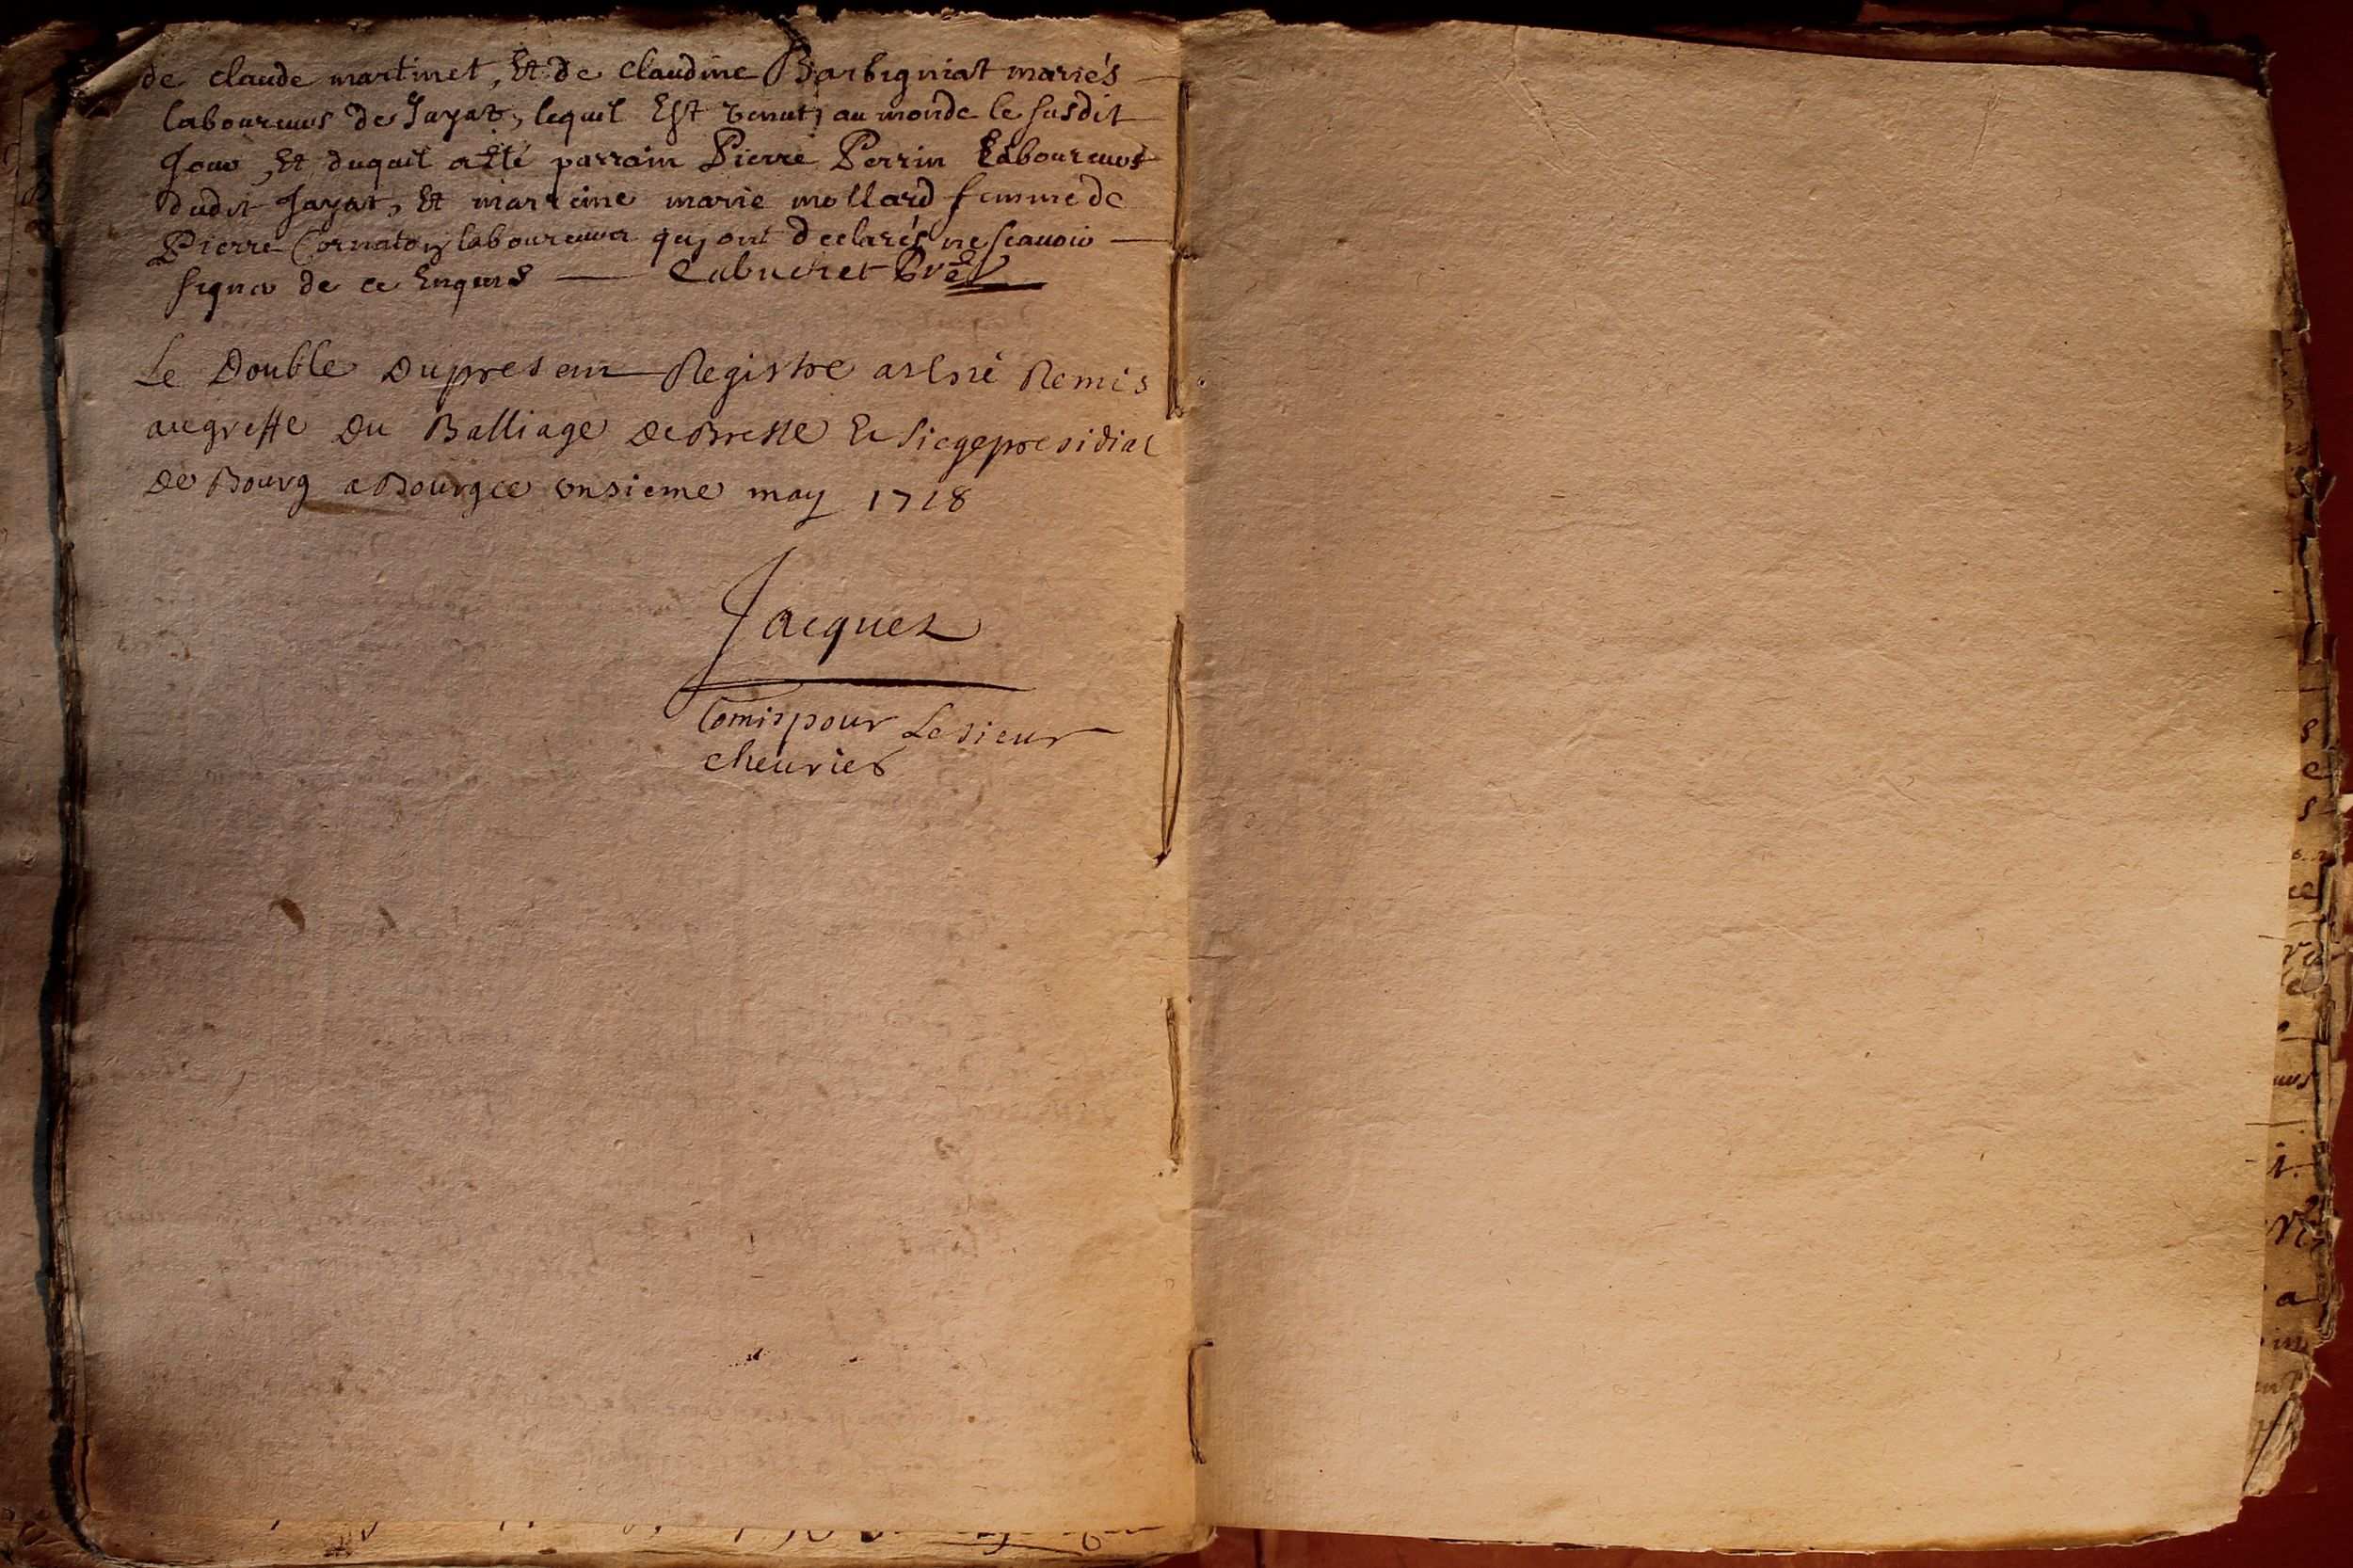 de claude martinet, Et de claudine Barbigniat mariés
laboureurs de Jayat, lequel Est venut au monde le susdit
Jour, Et duquel a Eté parrain Pierre Perrin Laboureur
dudit Jayat, Et marreine marie mollard femme de
Pierre Cornaton laboureur quj ont declarés ne scauoir
signer de ce Enquis Cabuchet Prê
Le Double Du present Registre a esté Remis
au greffe Du Balliage De Bresse Et siege presidial
De Bourg a Bourg ce onsieme may 1718
Jacquez
Comis pour Le sieur
cheurier